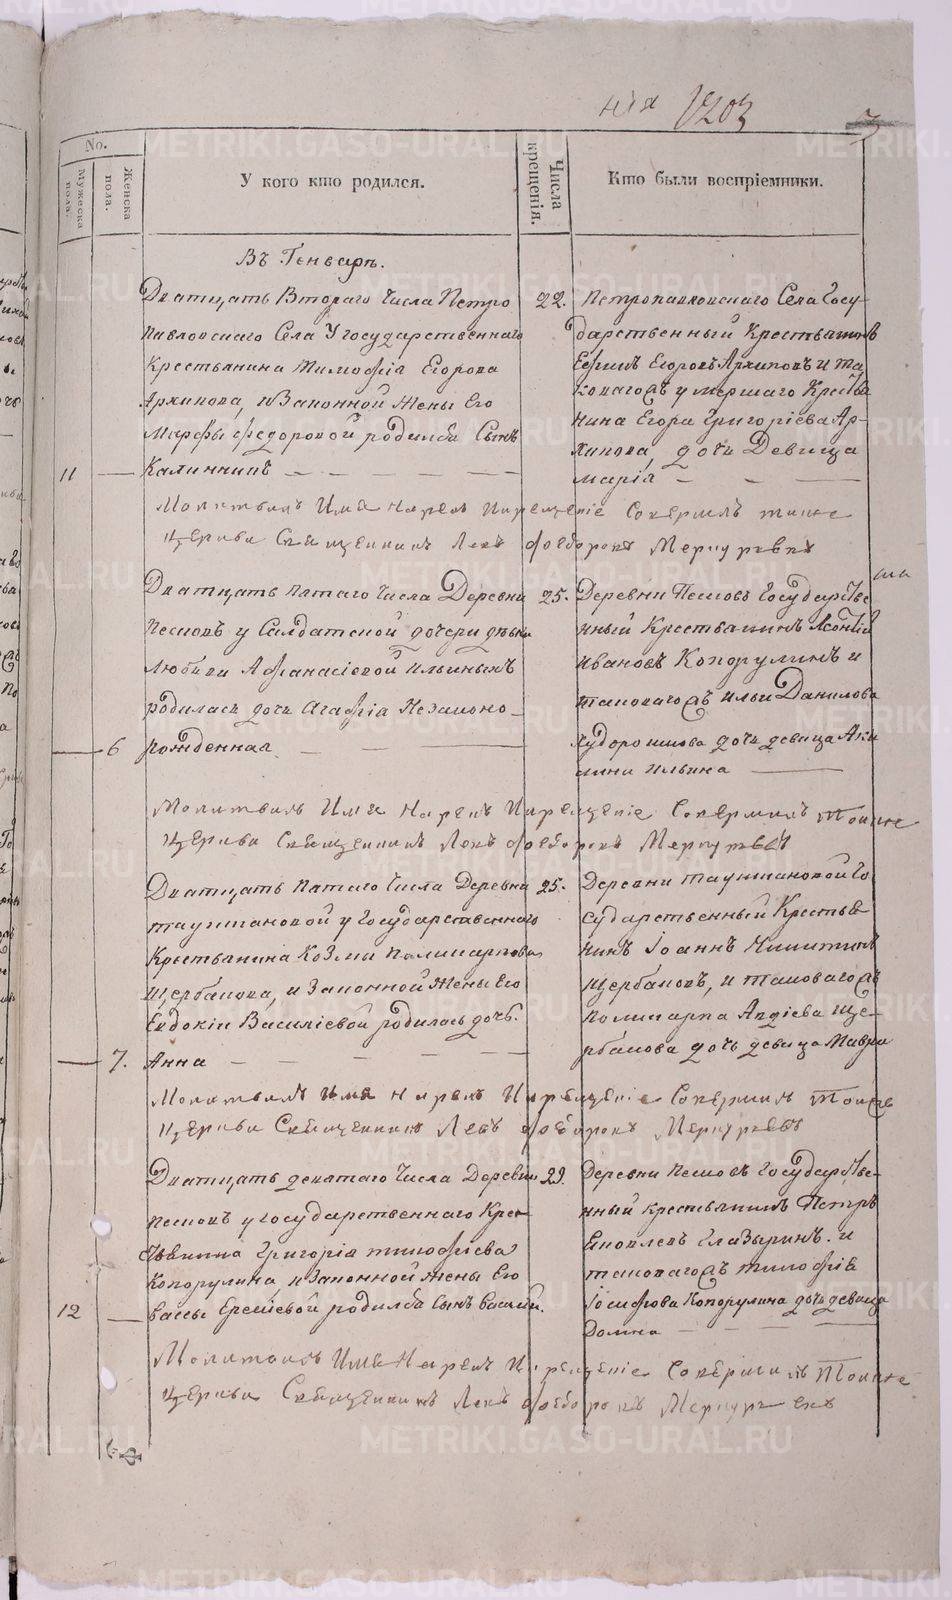 нія 1203
No.
Мужеска пола.
Женска пола.
У кого кто родился.
Числа крещенія.
Кто были воспріемники.
Въ Генварѣ.
Дватцать Втораго Числа Петро
павловскаго Села У государственнаго
Крестьянина Тимофея Егорова
Архипова, и Законной жены Его
Марфы Федоровой родился Сынъ
11 Калинникъ
22. Петропавловскаго Села Госу-
дарственный Крестьянинъ
Ефимъ Егоровъ Архиповъ и та
коваго съ умершаго Крестья
нина Егора Григоріева Ар-
хипова, дочь Девица
Марія
Молитвилъ Имя Нарекъ И Крещеніе Совершилъ тоиже
Церкви Священникъ Левъ Федоровъ Меркурьевъ
Дватцать пятаго Числа Деревни
Песковъ у Салдатской дочери девки
Любави Афанасіевой Ильиныхъ
родилась дочь Агафія Незаконо-
6 рожденная
25. Деревни Песковъ Государстве
нный Крестьянинъ Леонтий
Ивановъ Копорулинъ и
таковагожъ Ильи Данилова
Худорошкова дочь девица Аку
лина Ильина
Молитвилъ Имя Нарекъ И Крещеніе Совершилъ Тоиже
Церкви Священникъ Левъ Федоровъ Меркурьевъ
Дватцать пятаго Числа Деревни
Таушкановой у Государственнаго
Крестьянина Козмы Поликарпова
Щербакова, и Законной жены Его
Евдокіи Василіевой родилась дочь.
7. Анна
25. Деревни Таушкановой Го
сударственный Крестья
нинъ Іоаннъ Никитинъ
Щербаковъ, и таковагожъ
Поликарпа Авдіева Ще-
рбакова дочь девица Мавра
Молитвилъ Имя Нарекъ И Крещеніе Совершилъ Тоиже
Церкви Священникъ Левъ Федоровъ Меркурьевъ
Дватцать девятаго Числа Деревни
Песковъ у государственнаго Крес
тьянина Григорія Тимофіева
Копорулина и Законной жены Его
12 Вассы Еремѣевой родился Сынъ Василій.
29. Деревни Песковъ Государстве-
нный крестьянинъ Петръ
Яковлевъ Глазыринъ. и
таковагожъ Тимофія
Іосифова Копорулина дочь девица
Домна
Молитвилъ Имя Нарекъ И Крещеніе Совершилъ Тоиже
Церкви Священникъ Левъ Федоровъ Меркурьевъ
METRIKI.GASO-URAL.RU